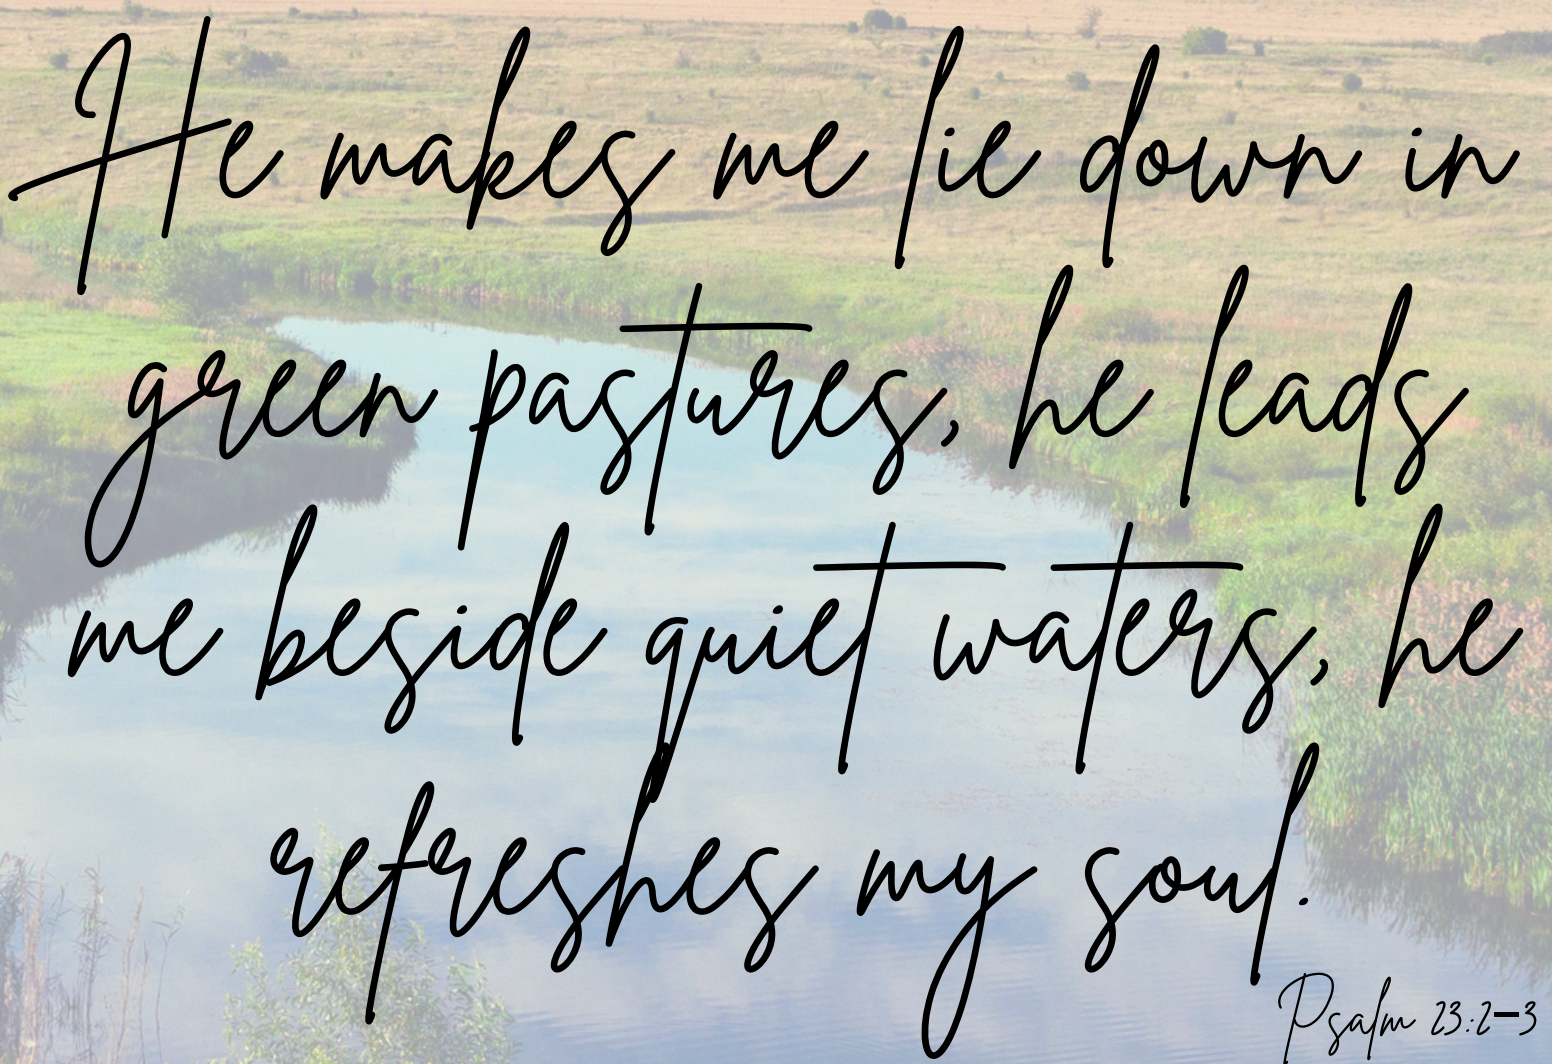 He makes me lie down in
green pastures, he leads
me beside quiet waters, he
refreshes my soul.
Psalm 23:2–3